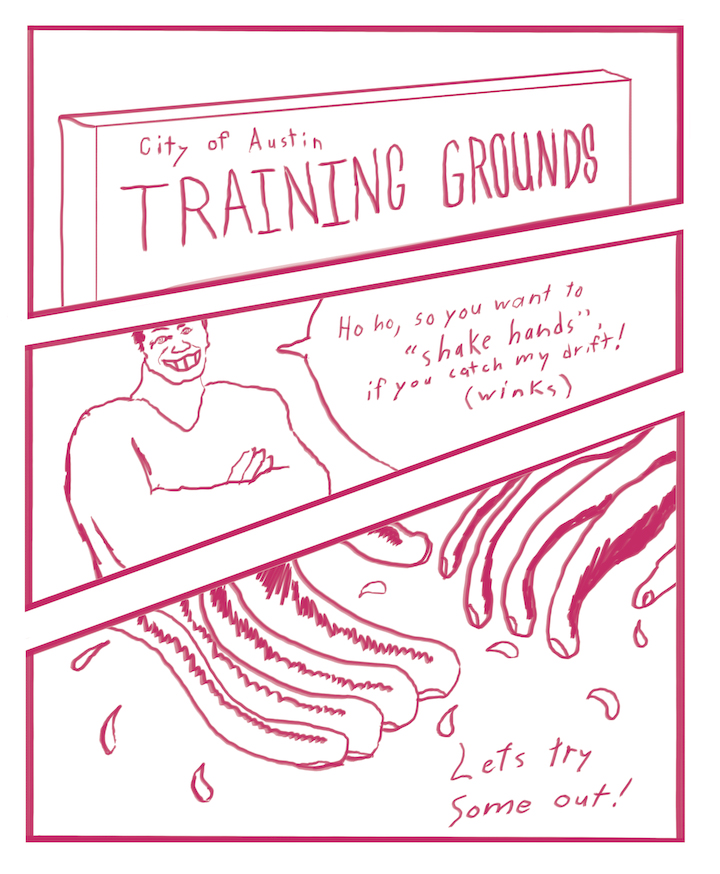 City of Austin
TRAINING GROUNDS
Ho ho, so you want to
"shake hands",
if you catch my drift!
(winks)
Lets try
some out!